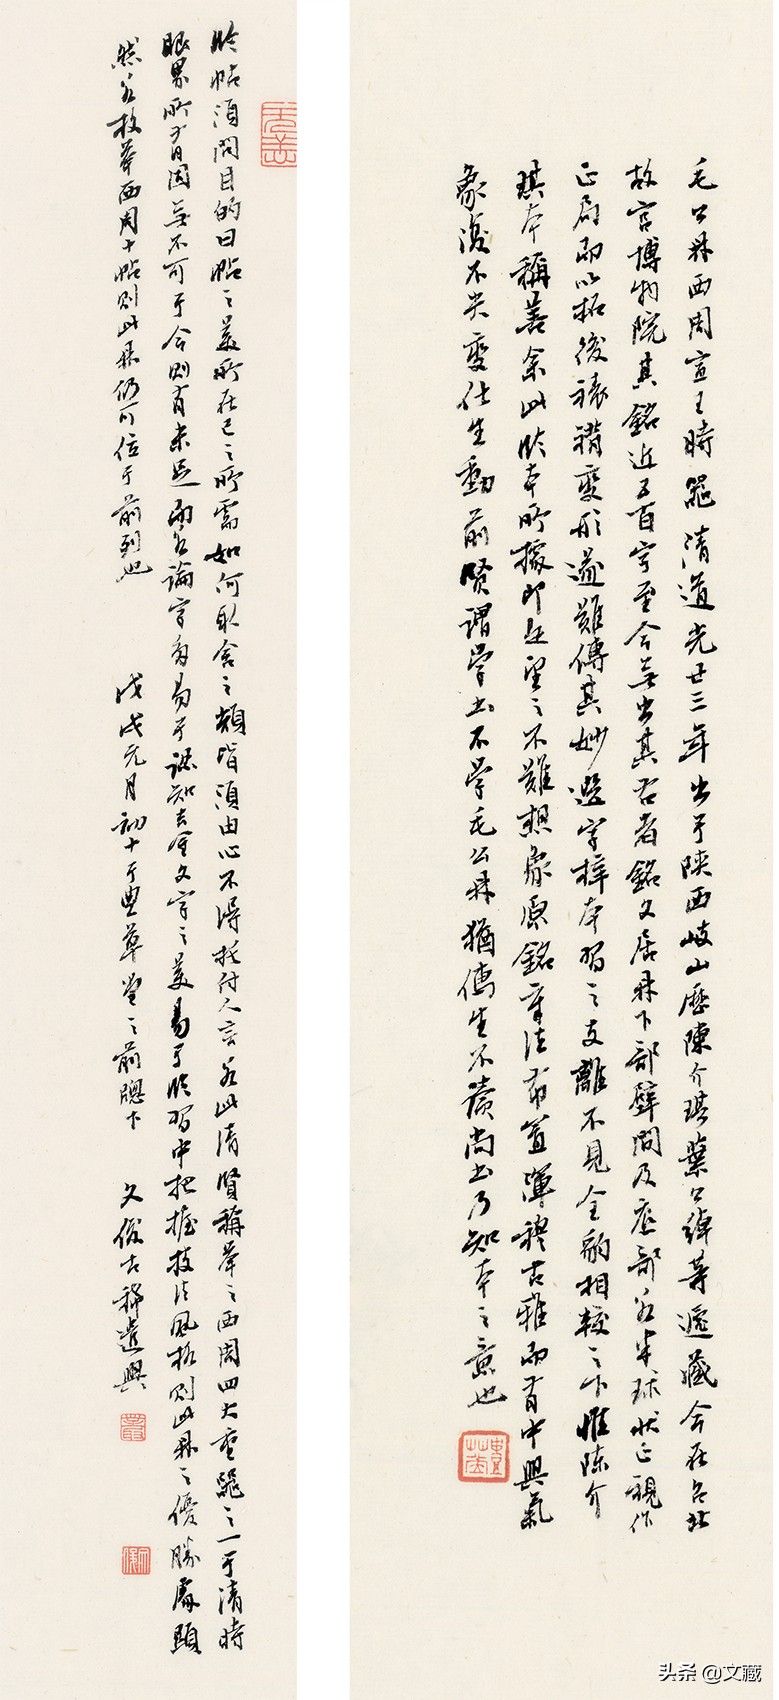 毛公鼎西周宣王時器清道光廿三年出于陝西岐山歷陳介琪葉公綽等遞藏今在台北
故宫博物院其銘近五百字至今無出其右者銘文居鼎下部壁間及底部为半球状正視作
正扇面以拓後裱褙變形遂難傳其妙選字梓本習之支離不見全豹相較之下惟陈介
琪本稱善余此临本所據即是望之不難想象原銘章法布置渾穆古雅而有中興氣
象後不失變化生動前賢謂學書不學毛公鼎猶儒生不讀尚書乃知本之意也
临帖須問目的曰帖之美所在己之所需如何取舍之類皆須由心不得托付人言为此清賢稱舉之西周四大重器之一于清時
眼界所有固無不可于今則有未足而各論字多易于認知去金文字之美易于临習中把握技法風格則此鼎之優勝處顯
然为枚舉西周十帖則此鼎仍可位于前列也
戊戌元月初十于興草堂之前牕下 文俊古稀遣興
头条 @文藏